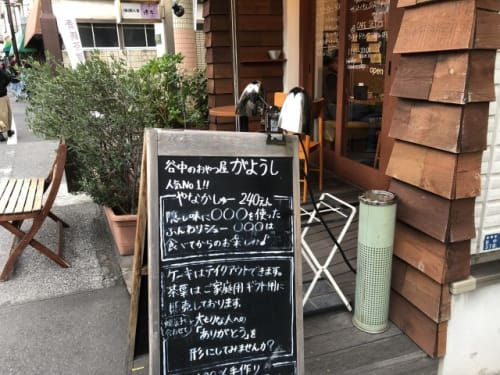 谷中のおやつ屋 がようし
人気No1!!
やなかしゅー 240えん
隠し味に○○○を使った
ふんわりシュー ○○○は
食べてからのお楽しみ♪
ケーキはテイクアウトできます。
茶葉はご家庭用 ギフト用に
販売しております。
大切な人への
「ありがとう」を
形にしてみませんか?
手作り
open